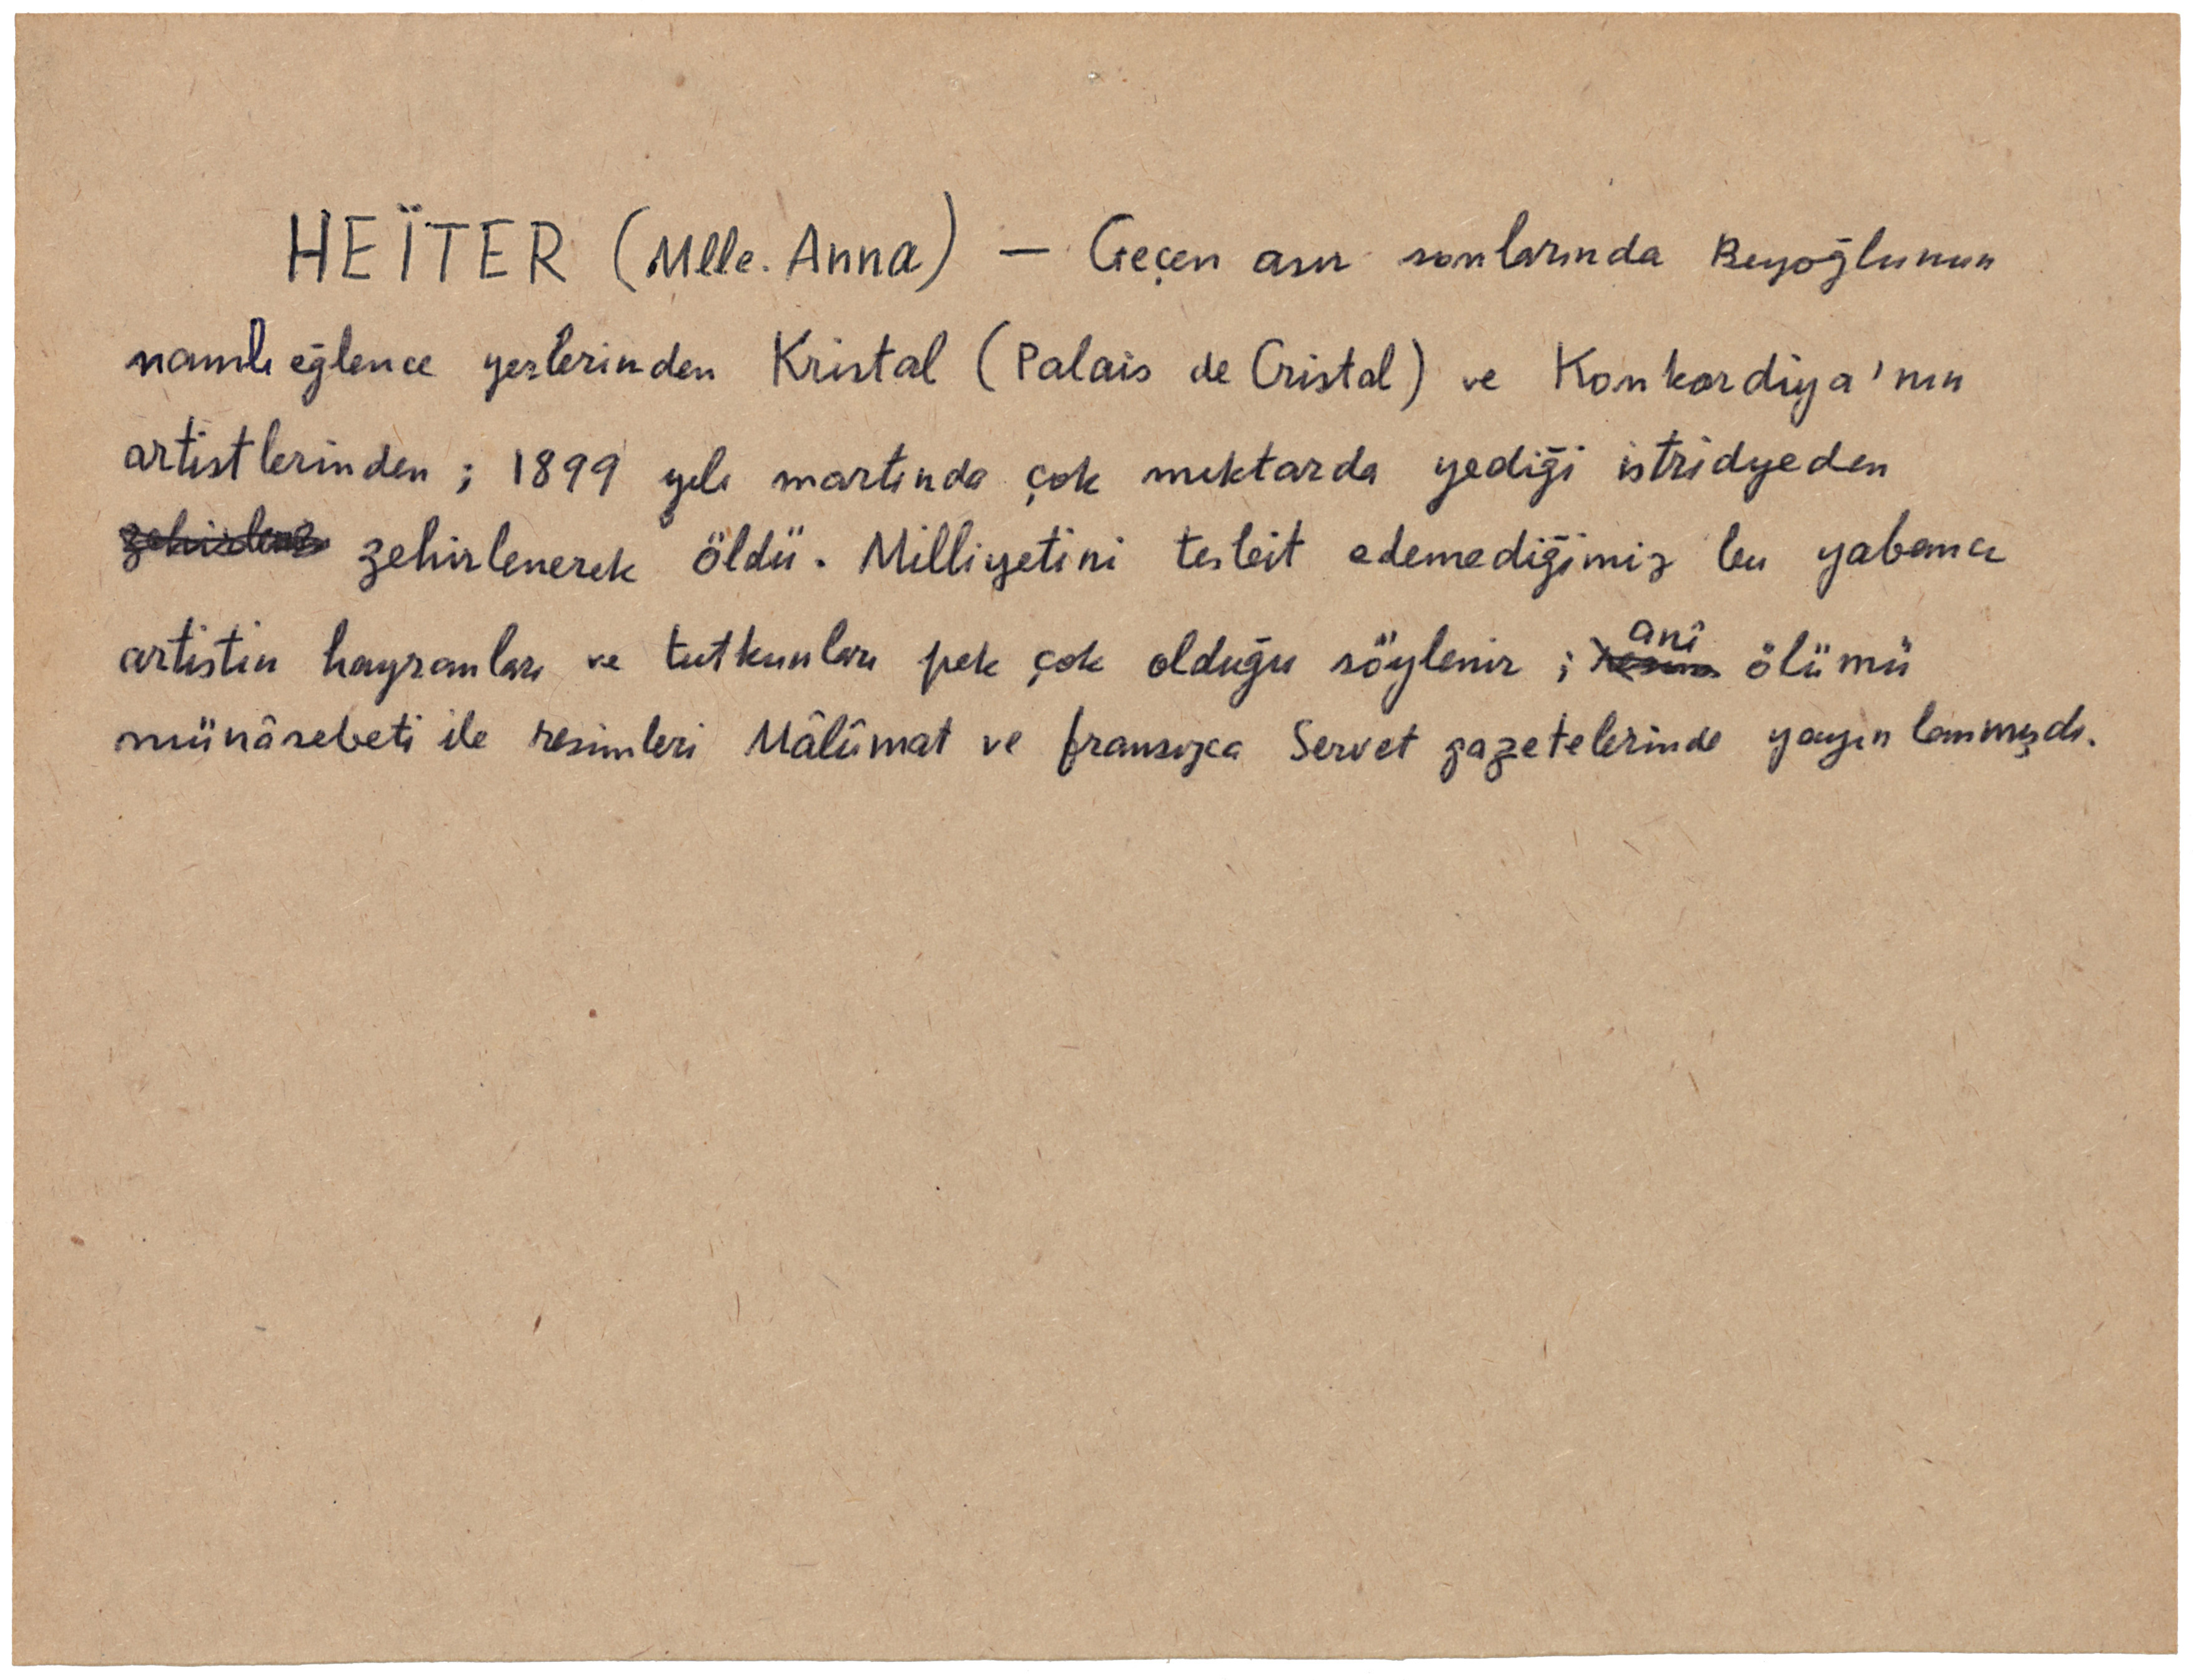 HEÏTER (Mlle. Anna) — Geçen asır sonlarında Beyoğlunun
namlı eğlence yerlerinden Kristal (Palais de Cristal) ve Konkordiya'nın
artistlerinden ; 1899 yılı martında çok mıktarda yediği istridyeden
zehirlenerek öldü. Milliyetini tesbit edemediğimiz bu yabancı
artistin hayranları ve tutkunları pek çok olduğu söylenir ; anî ölümü
münâsebeti ile resimleri Mâlûmat ve fransızca Servet gazetelerinde yayınlanmışdı.